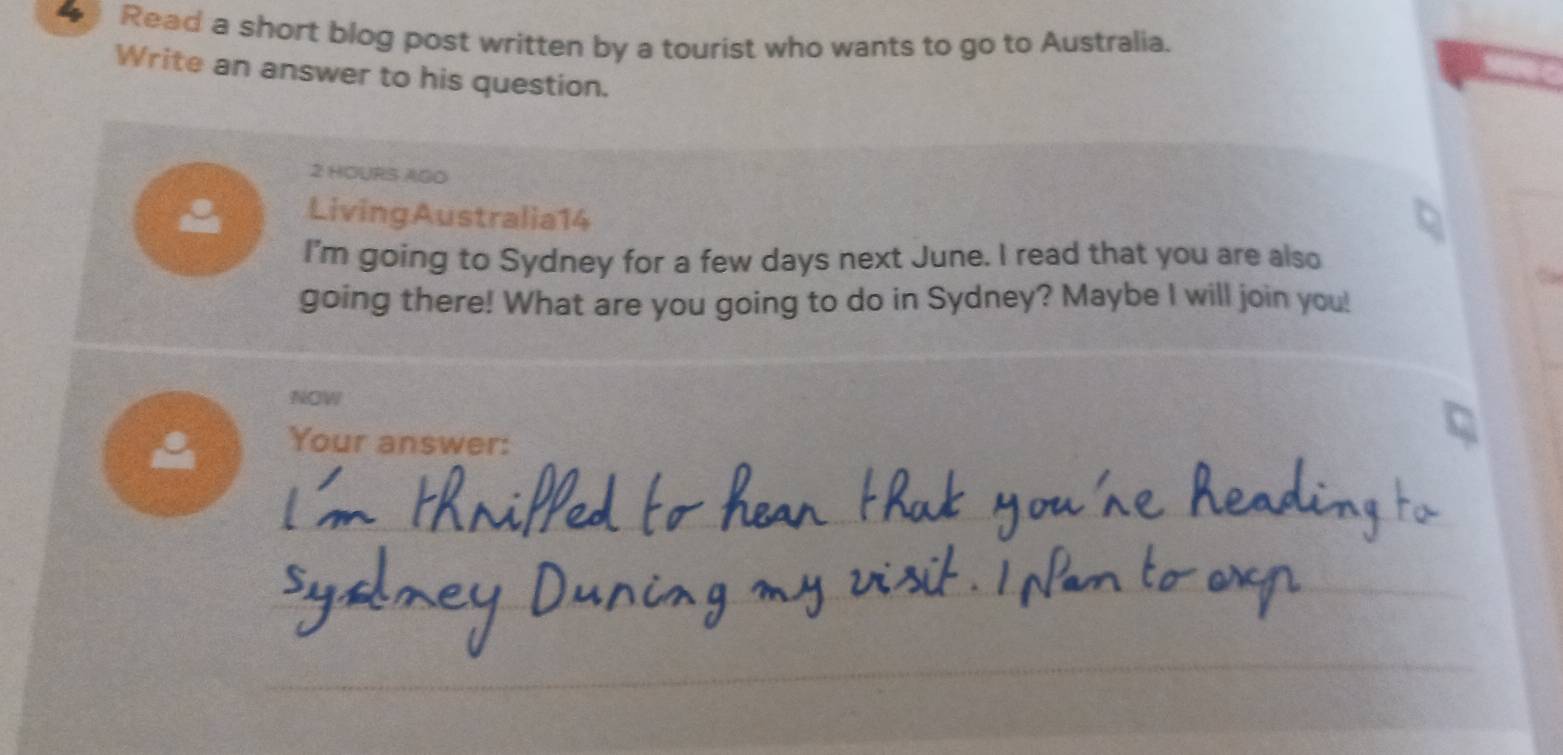 4 Read a short blog post written by a tourist who wants to go to Australia.
Write an answer to his question.
2 HOURS AGO
LivingAustralia14
I'm going to Sydney for a few days next June. I read that you are also
going there! What are you going to do in Sydney? Maybe I will join you!
NOW
Your answer:
I'm thrilled to hear that you're heading to
Sydney During my visit. I plan to exp